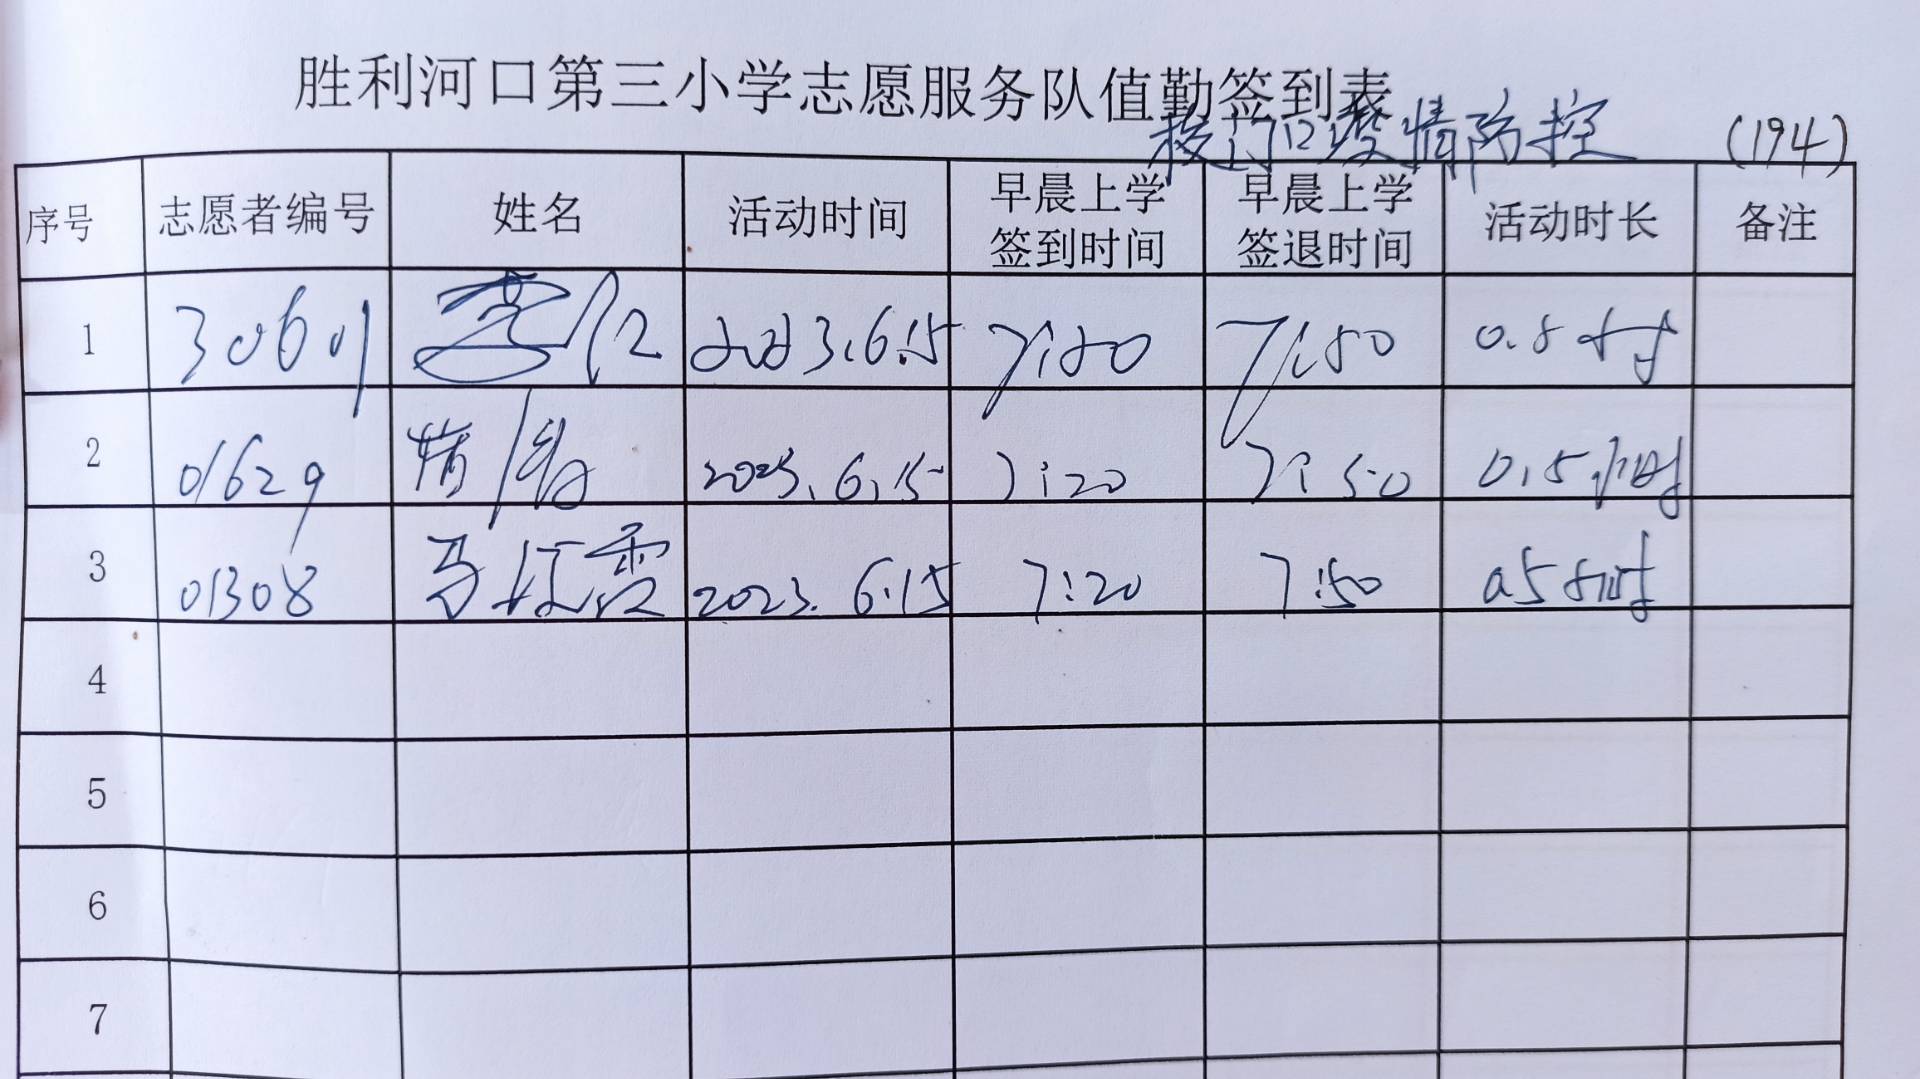 胜利河口第三小学志愿服务队值勤签到表
校门口疫情防控 (194)
序号 志愿者编号 姓名 活动时间 早晨上学签到时间 早晨上学签退时间 活动时长 备注
1 30601 2023.6.15 7:20 7:50 0.5小时
2 01629 2023.6.15 7:20 7:50 0.5小时
3 01308 马红霞 2023.6.15 7:20 7:50 0.5小时
4
5
6
7